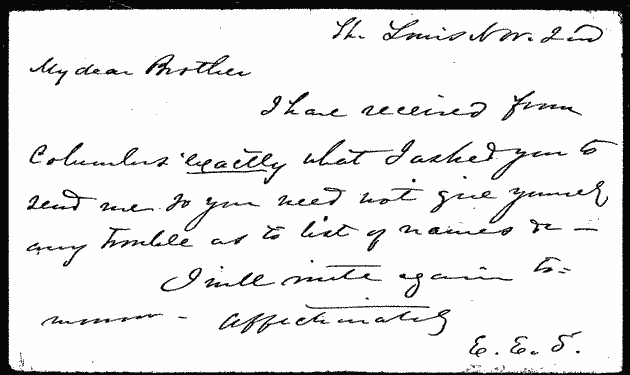 St. Louis Nov. 2nd
My dear Brother
I have received from
Columbus exactly what I asked you to
send me so you need not give yourself
any trouble as to list of names &c —
I will write again to=
morrow - Affectionately
E. E. S.